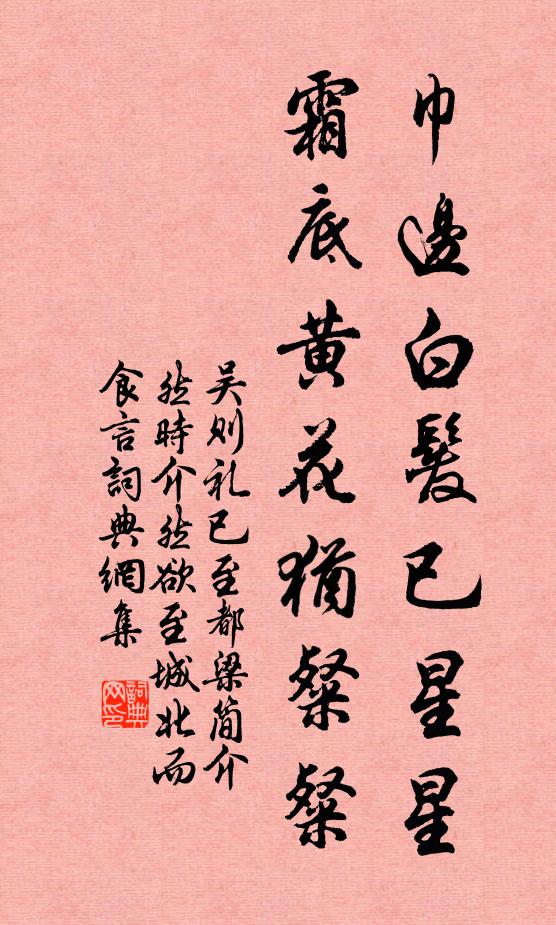 巾邊白髮已星星
霜底黄花猶粲粲
吴则礼已至都梁简介
然時介然欲至城北而
食言詞典網集
詞典网印